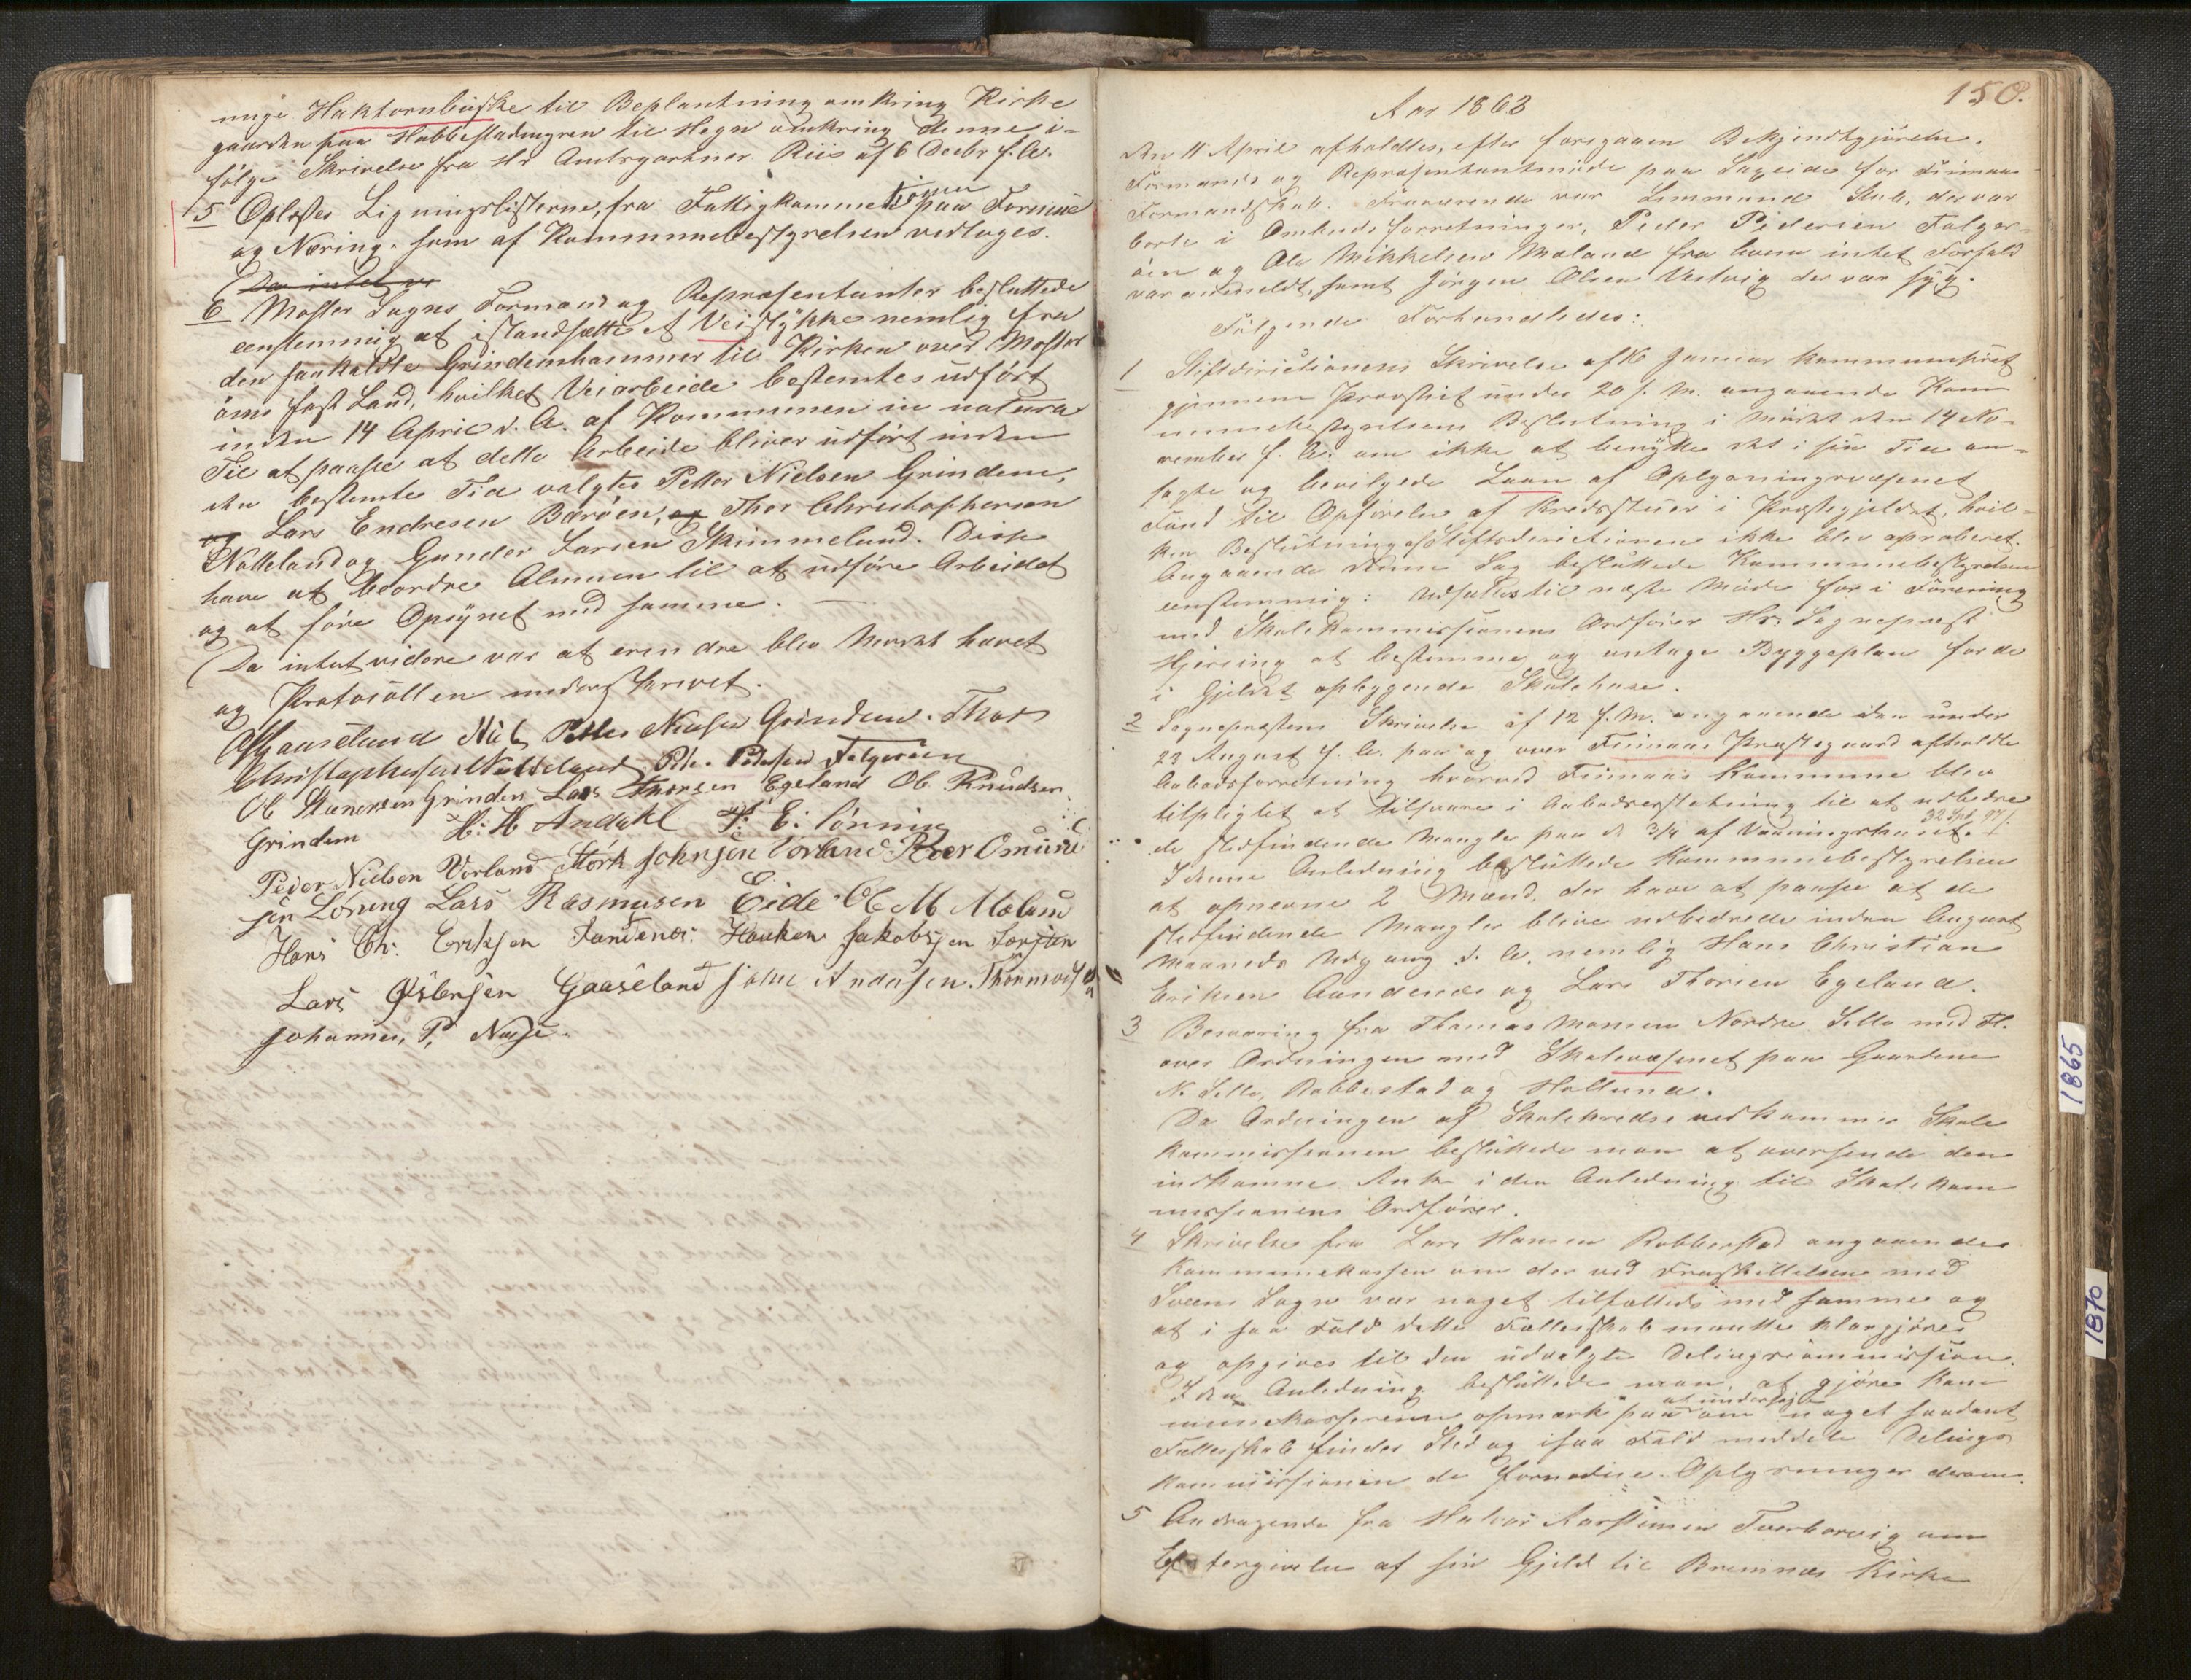 nuge Haktornbuske til Beplantning omkring Kirke
gaarden paa Habbestadmyren til Hegn omkring denne i-
følge Skrivelse fra Hr Amtsgartner Riis af 6 Decbr f. A.
5 Oplæstes Ligningslisterne, fra Fattigkommissionen paa Formue
og Næring. som af Kommunebestyrelsen vedtoges.
Da intet vi
6 Moster Sogns Formænd og Repræsentanter besluttede
eenstemmig at istandsætte et Veistykke nemlig fra
den saakaldte Grindemhammer til Kirken over Moster
øens fast Land, hvilket Veiarbeide bestemtes udført
inden 14 April d. A. af Kommunen in natura
Til at paasee at dette Arbeide bliver udført inden
den bestemte Tid valgtes Petter Nielsen Grindem,
og Lars Endresen Børøen, og Thor Christophersen
Nætteland og Gunder Larsen Skimmeland. Disse
have at beordre Almuen til at udføre Arbeidet
og at føre Opsynet med samme.
Da intet videre var at erindre blev Mødet hævet
og Protocollen underskrevet.
Gaaseland Petter Nielsen Grindem. Thor
Christophersen Nætteland Peder Pedersen Folgerøen
Ol Grindem Lars Thorsen Egeland Ole Knudsen
Grindem H. H Andahl E: Lønning
Peder Nielsen Vorland Størk Johnsen Vorland Peer Omund
sen Løning Lars Rasmusen Eide Ole M Mæland
Hans Chr. Eriksen Sandenes. Haaken Jakobsen
Lars Østensen Gaaseland John Andersen
Johannes, P,
150.
Aar 1863
Den 11 April afholdtes, efter foregaaen Bekjendtgjørelse,
Formænds og Repræsentantmøde paa for Finnaas
Formandskab. Fraværende var Lensmand Stub, der var
borte i Embeds forretninger, Peder Pedersen Folger-
øen og Ole Mikkelsen Mæland fra hvem intet Forfald
var anmeldt, samt Jørgen Olsen Vestvig der var syg.
Følgende Forhandledes:
1 Stiftsdirectionens Skrivelse af 16 Januar kommuniseret
gjennem Provstiet under 20 f. M. angaaende Kom
munebestyrelsens Beslutning i Mødet den 14 No-
vember f. A. om ikke at benytte det i sin Tid an-
søgte og bevilgede Laan af Oplysningsvæsenets
Fond til Opførelse af Kredsstuer i Præstegjeldet, hvil-
ken Beslutning af Stiftsdirectionen ikke blev aproberet.
Angaaende denne Sag besluttede Kommunebestyrelsen
eenstemmig: Udsættes til næste Møde for i Forening
med Skolekommissionens Ordfører Hr. Sognepræst
Hjersing at bestemme og antage Byggeplan for de
i Gjeldet opbyggende Skolehuse.
2 Sognepræstens Skrivelse af 12 f. M. angaaende den under
22 August f. A. paa og over Finnaas Præstegaard afholdte
Aabodsforretning hvorved Finnaas Kommune blev
tilpligtet at tilsvare i Aabodserstatning til at udbedre
32 Spd. 97 s.
de stedfindende Mangler paa de 3/4 af Vaaningshuset.
I denne Anledning besluttede Kommunebestyrelsen
at opnævne 2 Mænd, der have at paasee at de
stedfindende Mangler blive udbedrede inden August
Maaneds Udgang d. A. nemlig Hans Christian
Eriksen Sandenes og Lars Thorsen Egeland.
3 Besværing fra Thomas Monsen Nordre Selle med Fl.
over Ordningen med Skolevæsenet paa Gaardene
N. Selle, Robbestad og Hallund.
Da Ordningen af Skolekredse vedkommer Skole
kommissionen besluttede man at oversende den
indkomne Anke i den Anledning til Skolekom
missionens Ordfører.
4 Skrivelse fra Lars Hansen Robberstad angaaende
Kommunekassen om der ved Fraskillelsen med
Sveens Sogn var noget tilfælleds med samme og
at i saa Fald dette Fællesskab maatte klargjøres
og opgives til den udvalgte Delingscommission.
I den Anledning besluttede man at gjøre Kom
munekassereren opmærk paa at undersøge om noget saadant
Fællesskab findes Sted og isaa Fald meddele Delings
kommissionen de fornødne Oplysninger derom.
5 Andragende fra Halvor Torstensen Tverborvig om
Eftergivelse af sin Gjeld til Bremnæs Kirke
1865
1870